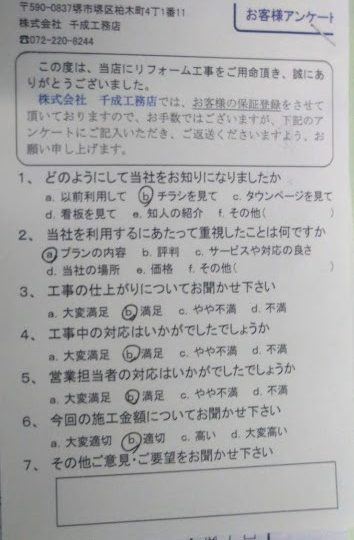 〒590-0837堺市堺区柏木町4丁1番11
お客様アンケート
株式会社 千成工務店
☎072-220-8244
この度は、当店にリフォーム工事をご用命頂き、誠にあ
りがとうございました。
株式会社 千成工務店では、お客様の保証登録をさせて
頂いておりますので、お手数ではございますが、下記のア
ンケートにご記入いただき、ご返送くださいますよう、お
願い申し上げます。
1、 どのようにして当社をお知りになりましたか
a. 以前利用して b. チラシを見て c. タウンページを見て
d. 看板を見て e. 知人の紹介 f. その他(
2、 当社を利用するにあたって重視したことは何ですか
a. プランの内容 b. 評判 c. サービスや対応の良さ
d. 当社の場所 e. 価格 f. その他(
3、 工事の仕上がりについてお聞かせ下さい
a. 大変満足 b. 満足 c. やや不満 d. 不満
4、 工事中の対応はいかがでしたでしょうか
a. 大変満足 b. 満足 c. やや不満 d. 不満
5、 営業担当者の対応はいかがでしたでしょうか
a. 大変満足 b. 満足 c. やや不満 d. 不満
6、 今回の施工金額についてお聞かせ下さい
a. 大変適切 b. 適切 c. 高い d. 大変高い
7、 その他ご意見・ご要望をお聞かせ下さい